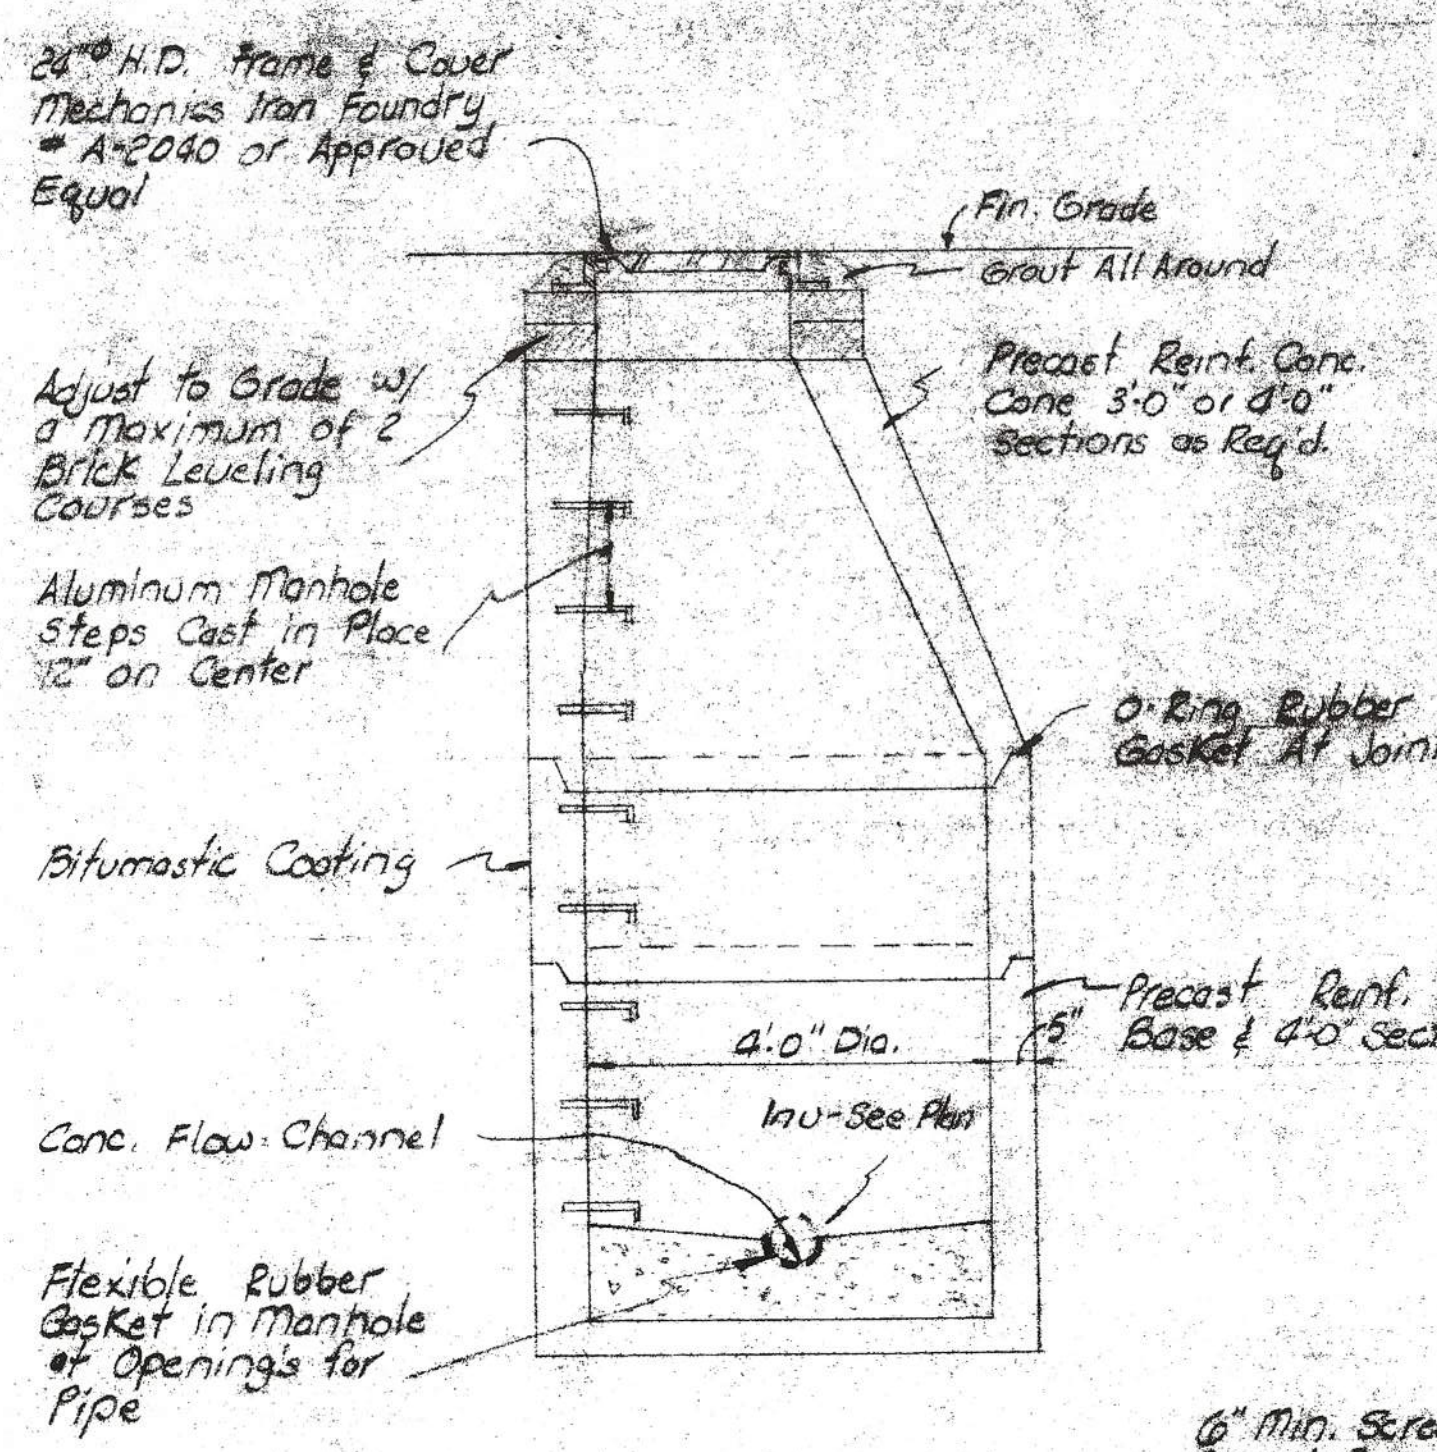 24"⌀ H.D. Frame & Cover
Mechanics Iron Foundry
# A-2040 or Approved
Equal
Fin. Grade
Grout All Around
Adjust to Grade w/
a Maximum of 2
Brick Leveling
Courses
Precast Reinf. Conc.
Cone 3'-0" or 4'-0"
Sections as Req'd.
Aluminum Manhole
Steps Cast in Place
12" on Center
O-Ring Rubber
Gasket At Join
Bitumastic Coating
Precast Reinf.
Base & 4'-0" Sec
5"
4'-0" Dia.
Inv-See Plan
Conc. Flow Channel
Flexible Rubber
Gasket in Manhole
at Opening's for
Pipe
6" Min. Scre